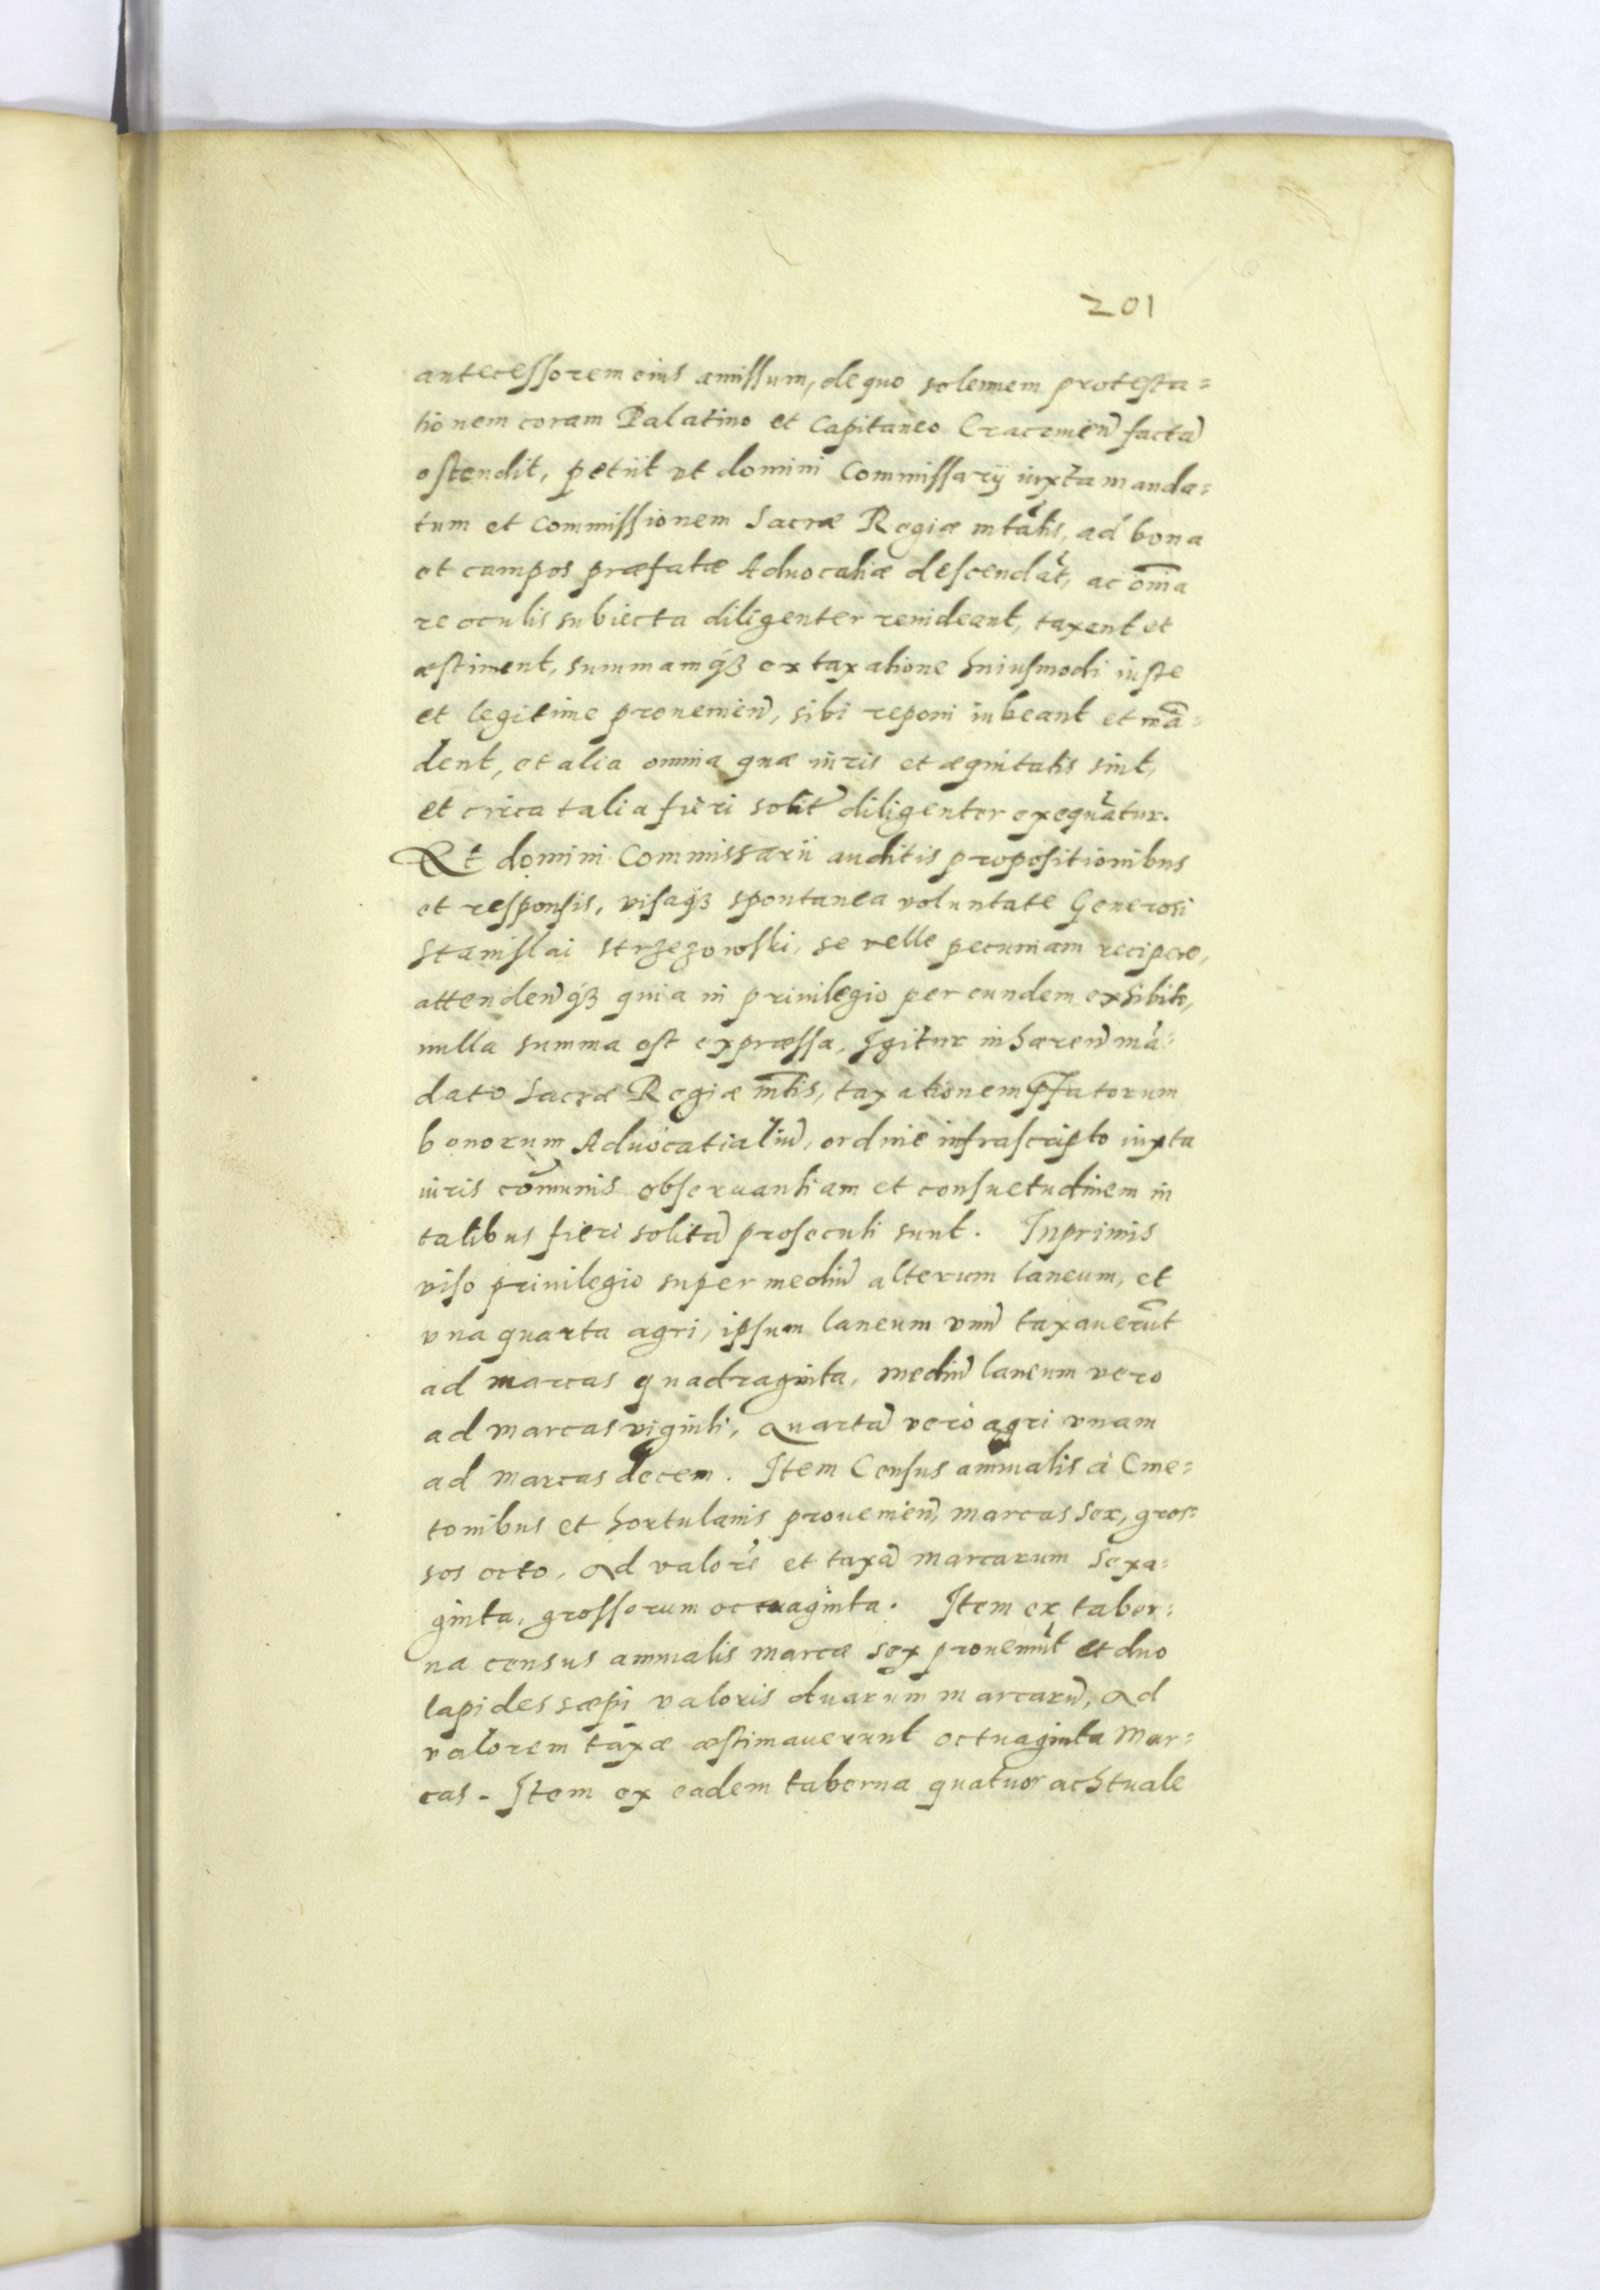 201
antecessorem eius amissum, de quo solennem protesta=
tionem coram Palatino et Capitaneo Cracouień factā
ostendit, petiit vt domini Commissarij iuxta manda=
tum et Commissionem Sacræ Regiæ mtātis, ad bona
et campos præfatæ Aduocatiæ descendāt, ac om̄ia
re oculis subiecta diligenter reuideant, taxent et
æstiment, summamq́ꝫ ex taxatione huiusmodi iuste
et legitime prouenień, sibi reponi iubeant et mā=
dent, et alia omnia quæ iuris et æquitatis sint,
et circa talia fieri solit̃ diligenter exequātur.
Et domini Commissarii auditis propositionibus
et responsis, visaq́ꝫ spontanea voluntate Generosi
Stanislai Strzezowski, se velle pecuniam recipere,
attendeńq́ꝫ quia in priuilegio per eundem exhibito,
nulla summa est expræssa, Igitur inhæreń mā=
dato Sacræ Regiæ mtis, taxationem p̄fatorum
bonorum Aduocatialiū, ordine infrascripto iuxta
iuris com̄unis obseruantiam et consuetudinem in
talibus fieri solitā prosecuti sunt. Inprimis
viso priuilegio super mediū alterum laneum, et
vna quarta agri, ipsum laneum vnū taxauerūt
ad marcas quadraginta, mediū laneum vero
ad marcas viginti, Quartā verò agri vnam
ad marcas decem. Item Census annualis à Cme=
tonibus et hortulanis prouenień, marcas Sex, gros=
sos octo, Ad valorē et taxā marcarum Sexa=
ginta, grossorum octuaginta. Item ex taber=
na census annualis marcæ sex proueniūt et duo
lapides sæpi valoris duarum marcarū, Ad
valorem taxæ æstimauerunt octuaginta Mar=
cas. Item ex eadem taberna quatuor achtuale